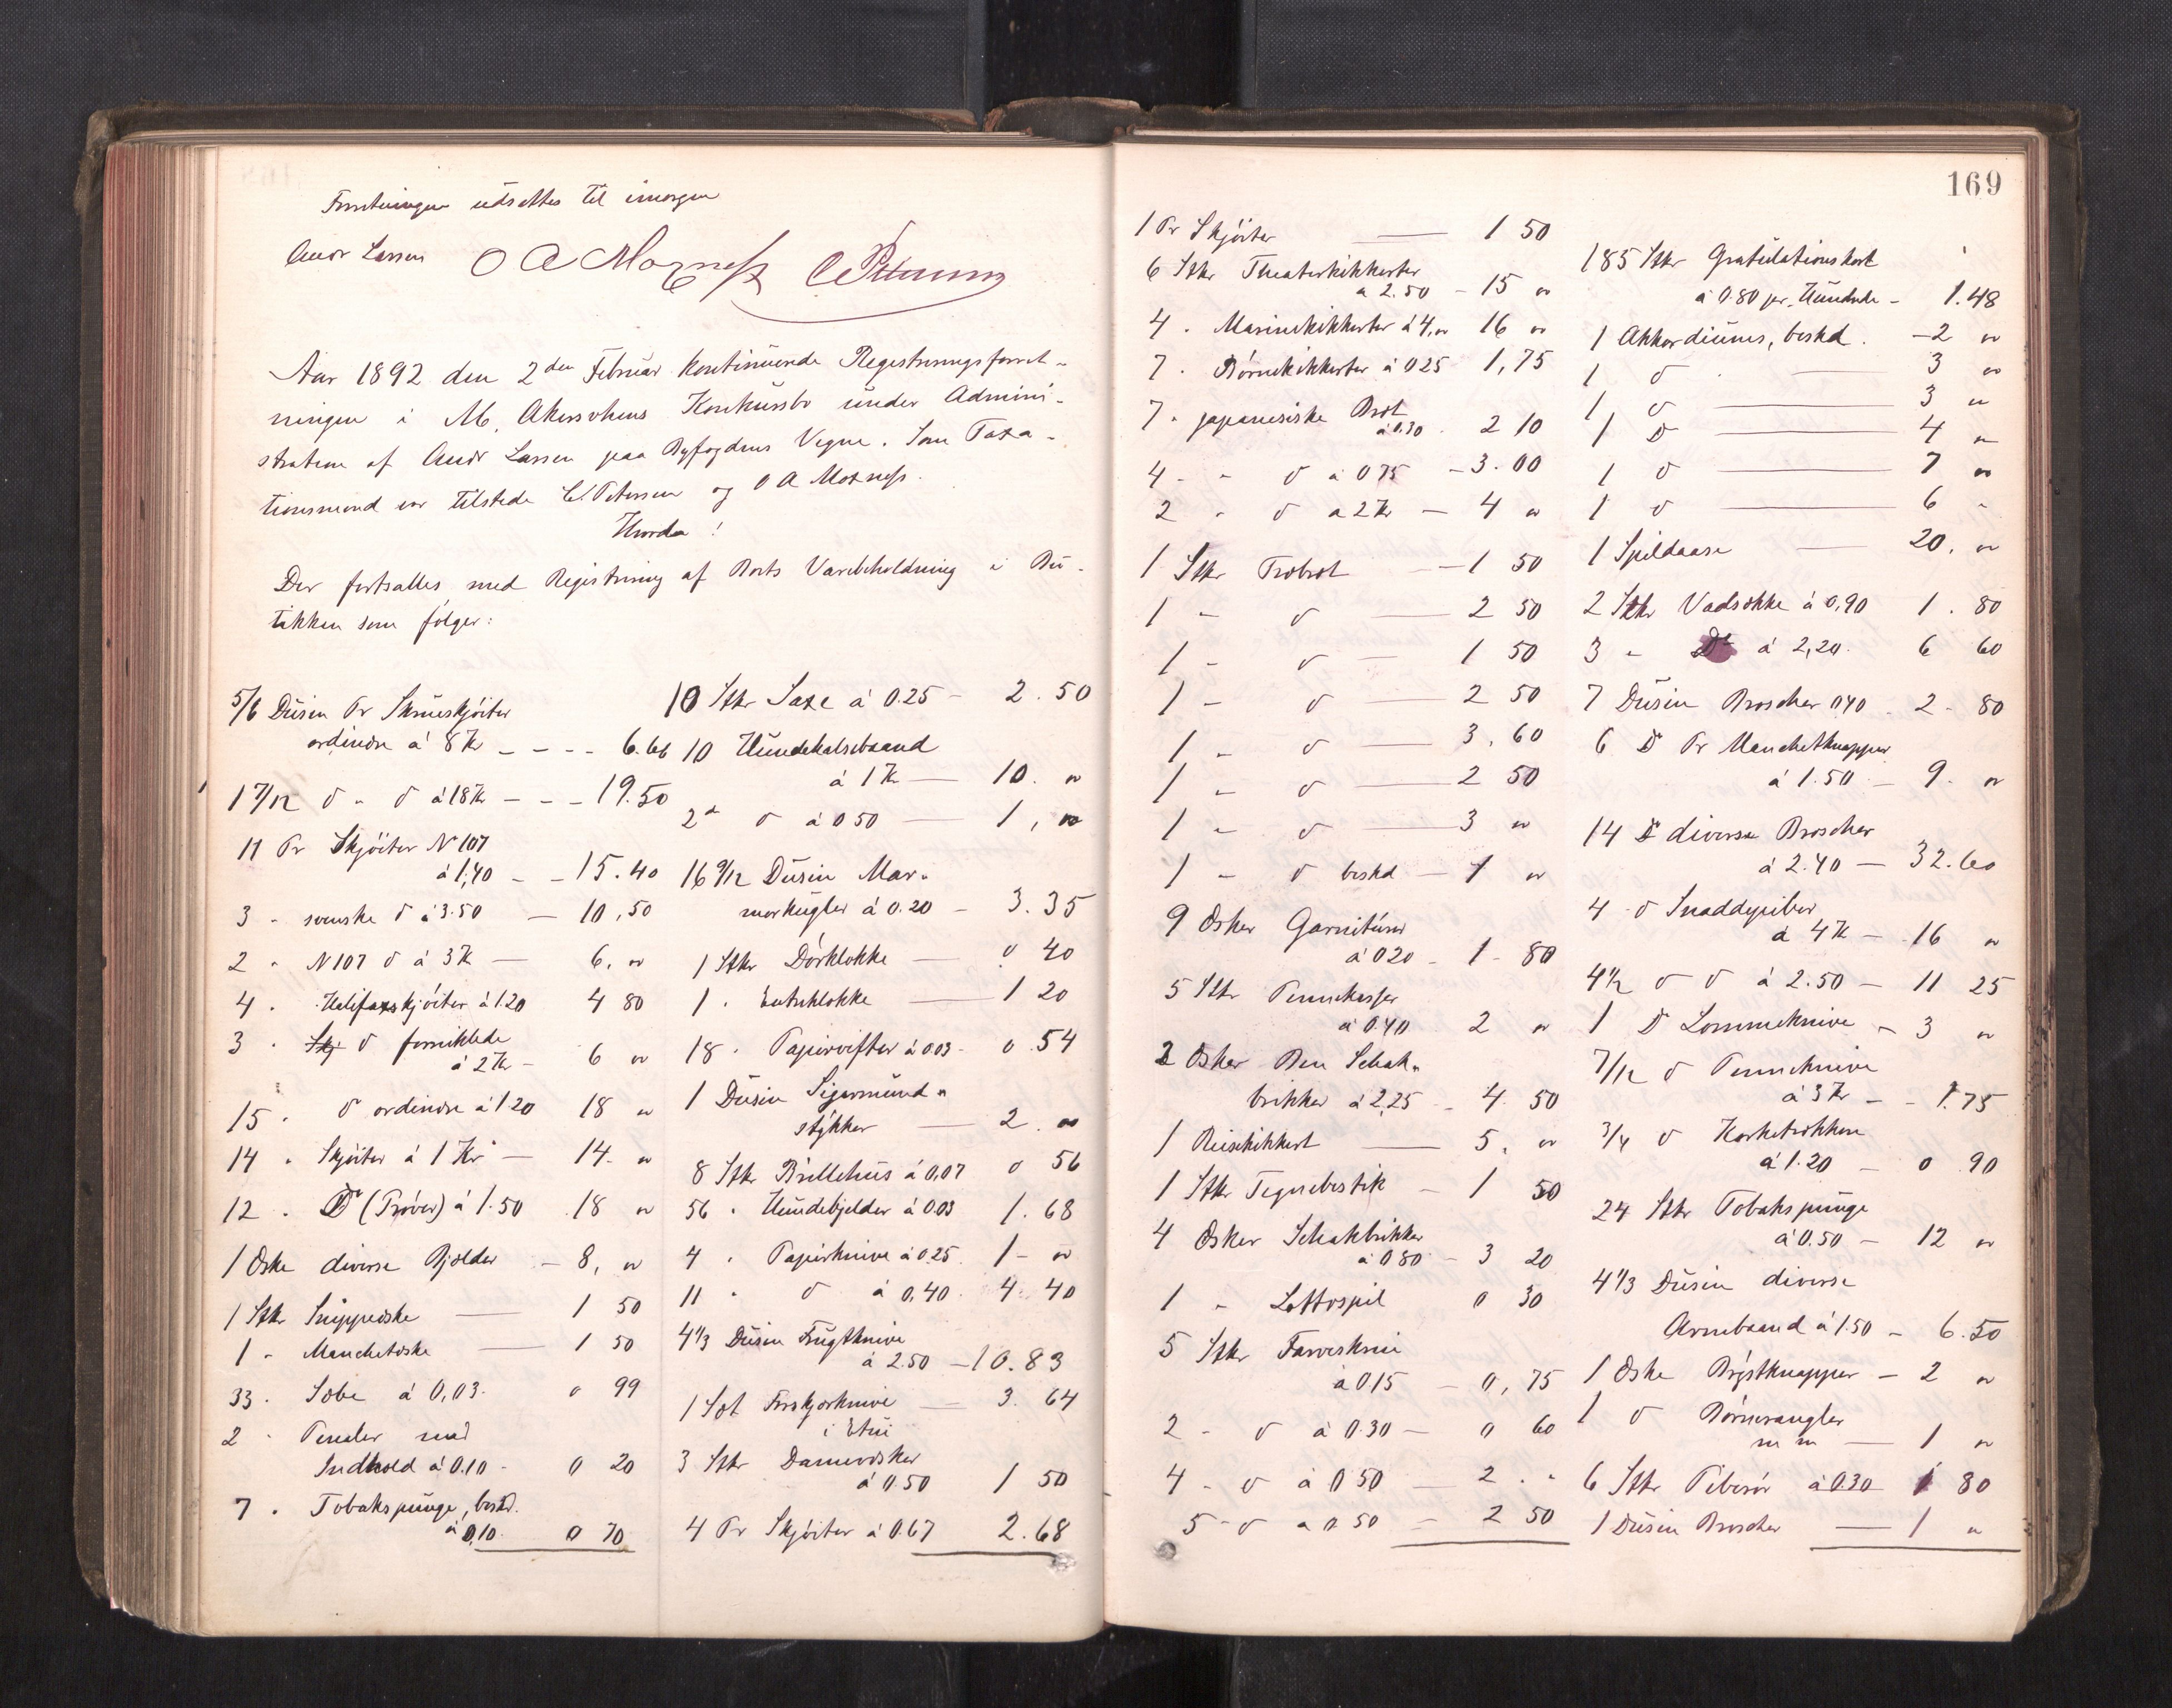 Forretningen udsattes til imorgen
Andr Larsen O A Moxness C Petersen
Aar 1892 den 2den Februar kontinuerede Registreringsforret-
ningen i M. Akersohns Konkursbo under Admini-
stration af Andr Larsen paa Byfogdens Vegne. Som Taxa-
tionsmænd var tilstede C. Petersen og O A Moxness.
Hvorda!
Der fortsattes med Registrering af Boets Varebeholdning i Bu-
tikken som følger:
5/6 Dusin Pr Skrueskjøiter
ordinære á 8 Kr - - - - 6.66
1 7/12 d " d á 18 Kr - - - 19.50
11 Pr Skjøiter N 107
á 1,40 - - 15.40
3 " svenske d á 3.50 — 10,50
2 " N 107 d á 3 Kr — 6, "
4 " Halifaxskjøiter á 1.20 4 80
3 " d forniklede
á 2 Kr - 6 "
15 " d ordinære á 1 20 18 "
14 " Skjøiter á 1 Kr — 14. "
12 " Do (Prøver) á 1.50 18 "
1 Æske diverse Bjelder — 8, "
1 Stkr Snippeske — 1 50
1 " Manchetæske — 1 50
33 " Sæbe á 0,03. 0 99
2 " Penaler med
Indhold á 0.10 - 0 20
7 " Tobakspunge, beskd.
á 0,10. 0 70
10 Stkr Saxe á 0.25 - 2.50
10 Hundehalsebaand
á 1 Kr — 10. "
2 " d á 0 50 — 1, "
16 9/12 Dusin Mar-
morkugler á 0.20 - 3.35
1 Stkr Dørklokke — 0 40
1 " klokke — 1 20
18 " Papirvifter á 0 03 - 0.54
1 Dusin Sigarmund-
stykker — 2. "
8 Stkr Brillehus á 0,07 0 56
56 " Hundebjelder á 0.03 1.68
4 " Papirknive á 0.25. 1 - "
11 " d á 0,40. 4 40
4 1/3 Dusin Frugtknive
á 2.50 — 10.83
1 Sæt Forskjærknive — 3. 64
i Etui
3 Stkr Dameæsker
á 0.50 1 50
4 Pr Skjøiter á 0.67 2.68
169
1 Pr Skjøiter — 1 50
6 Stkr Theaterkikkerter
á 2.50 - 15 "
4 " Marinekikkerter á 4," 16 "
7 " Børnekikkerter á 0 25 1,75
7 " japanesiske Bræt
á 0.30. 2 10
4 - " d á 0 75 — 3.00
2 " d á 2 Kr — 4 "
1 Stkr Træbræt — 1 50
1 " d — 2 50
1 " d — 1 50
1 " d — 2 50
1 " d — 3,60
1 " d — 2 50
1 " d — 3 "
1 " d beskd — 1 "
9 Æsker Garniturer
á 0 20 - 1 - 80
5 Stkr Pennekasser
á 0.40. 2 "
2 Æsker Ben Schak-
brikker á 2,25 - 4. 50
1 Reisekikkert — 5. "
1 Stkr Tegnebestik — 1 50
4 Æsker Schakbrikker
á 0 80 - 3 20
1 " Lottospil 0 30
5 Stkr Farveskrin
á 0.15 — 0,75
2 - d á 0.30 — 0 60
4 - d á 0 50 — 2. "
5 - d á 0.50 — 2 50
185 Stkr Gratulationskort
á 0.80 pr. Hundrede - 1.48
1 Akkordiums, beskd. — 2 "
1 d — 3 "
1 d — 3 "
1 D — 4 "
1 d — 7 "
1 d — 6 "
1 Spildaase — 20. "
2 Stkr Vadsække á 0,90 1.80
3 " Do á 2,20. 6 60
7 Dusin Broscher 0.40 - 2 - 80
6 D Pr Manchetknapper
á 1.50 — 9. "
14 D diverse Broscher
á 2.40 — 32.60
4 d Snaddepiber
á 4 Kr — 16 "
4 1/2 d d á 2.50 — 11 25
1 D Lommeknive - 3 "
7/12 d Penneknive
á 3 Kr - - 1.75
3/4 d Korketrækkere
á 1.20 — 0 90
24 Stkr Tobakspunge
á 0.50 — 12 "
4 1/3 Dusin diverse
Armbaand á 1.50 - 6.50
1 Æske Brystknapper — 2 "
1 d Børnerangler
m m — 1 "
6 Stkr Piberør á 0.30 1 80
1 Dusin Broscher — 1 "